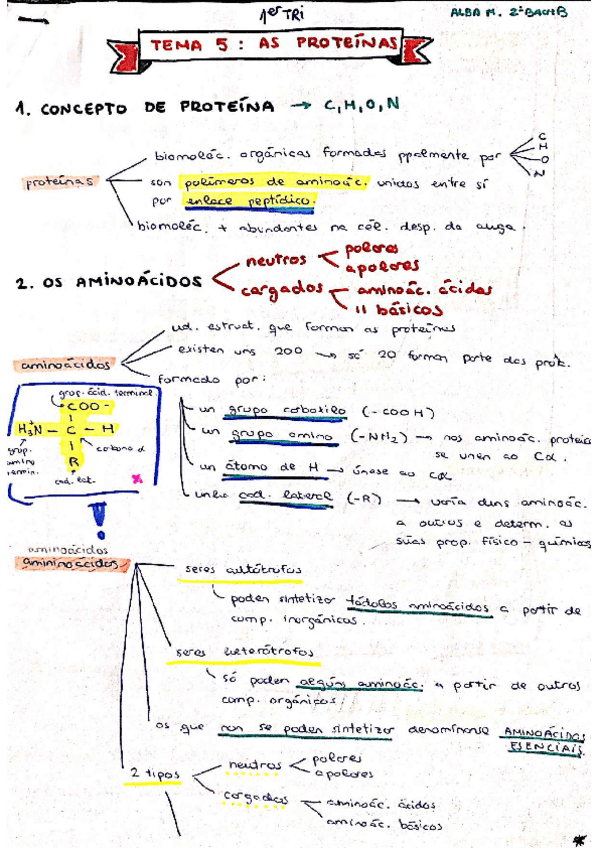 1er TRI
ALBA M. 2º BACH B
TEMA 5: AS PROTEÍNAS
1. CONCEPTO DE PROTEÍNA → C, H, O, N
proteínas
biomoléc. orgánicas formadas ppalmente por
C
H
O
N
son polímeros de aminoác. unidos entre sí
por enlace peptídico.
biomoléc. + abundantes na cél. desp. da auga.
2. OS AMINOÁCIDOS
neutros
polares
apolares
cargados
aminoác. ácidos
11 básicos
aminoácidos
ud. estruct. que forman as proteínas
existen uns 200 → só 20 forman parte das prot.
formado por:
un grupo carboxilo (-COOH)
un grupo amino (-NH2) → nos aminoác. proteic
se unen ao Cα.
un átomo de H → únese ao Cα
unha cad. lateral (-R) → varía duns aminoác.
a outros e determ. as
súas prop. físico-químicas
grup. ácid. terminal
COO-
H3N+ - C - H
R
grup. amino termin.
carbono α
cad. lat.
!
aminoácidos
amininoácidos
seres autótrofos
poden sintetizar tódolos aminoácidos a partir de
comp. inorgánicos.
seres heterótrofos
só poden algúns aminoác. a partir de outros
comp. orgánicos
os que non se poden sintetizar denomínanse AMINOÁCIDOS
ESENCIAIS.
2 tipos
neutros
polares
apolares
cargados
aminoác. ácidos
aminoác. básicos